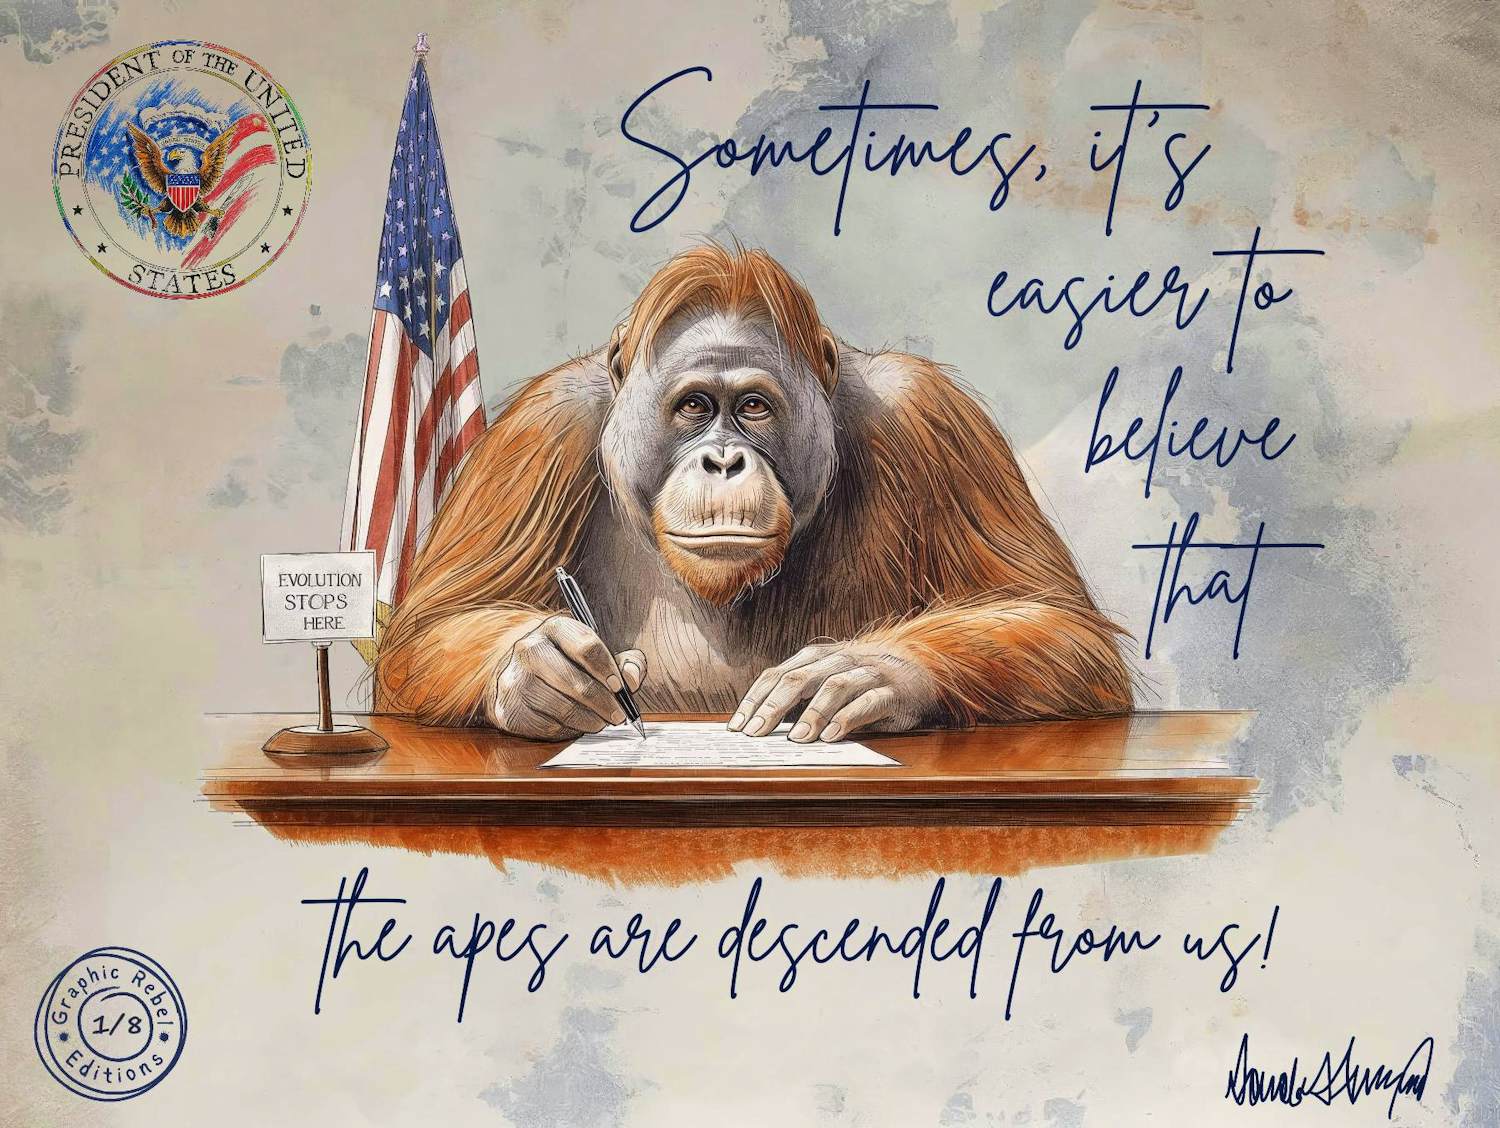 PRESIDENT OF THE UNITED
STATES
Sometimes, it's
easier to
believe
that
EVOLUTION
STOPS
HERE
the apes are descended from us!
Graphic Rebel
1/8
Editions